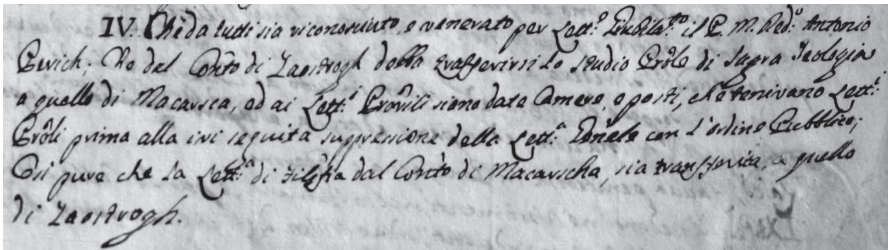 IV. Che da tutti sia riconosciuto, e venerato per Lett.e Giubila.to il P. M. Red.o Antonio
Pivich; Ne dal Con.to di Zaostrogh debba trasferirsi lo studio Prõle di Sagra Teologia
a quello di Macarsca, ed ai Lett.i Provili siano date Camere, e posti, che tenivano Lett.i
Prõli prima alla ivi seguita suppressione della Lett.a Gñale con l'ordine Pubblico;
Così pure che la Lett.a di Filõfia dal Con.to di Macarscha, sia transferita, a quello
di Zaostrogh.